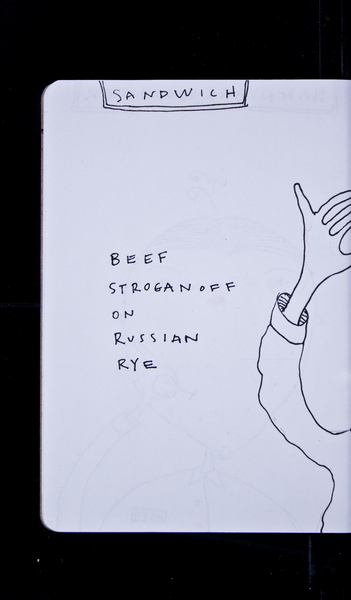 SANDWICH
BEEF
STROGANOFF
ON
RUSSIAN
RYE